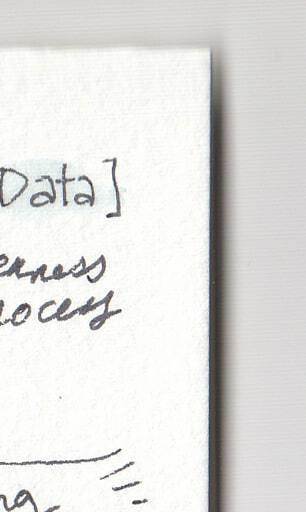 Data]
erness
rocess
ng